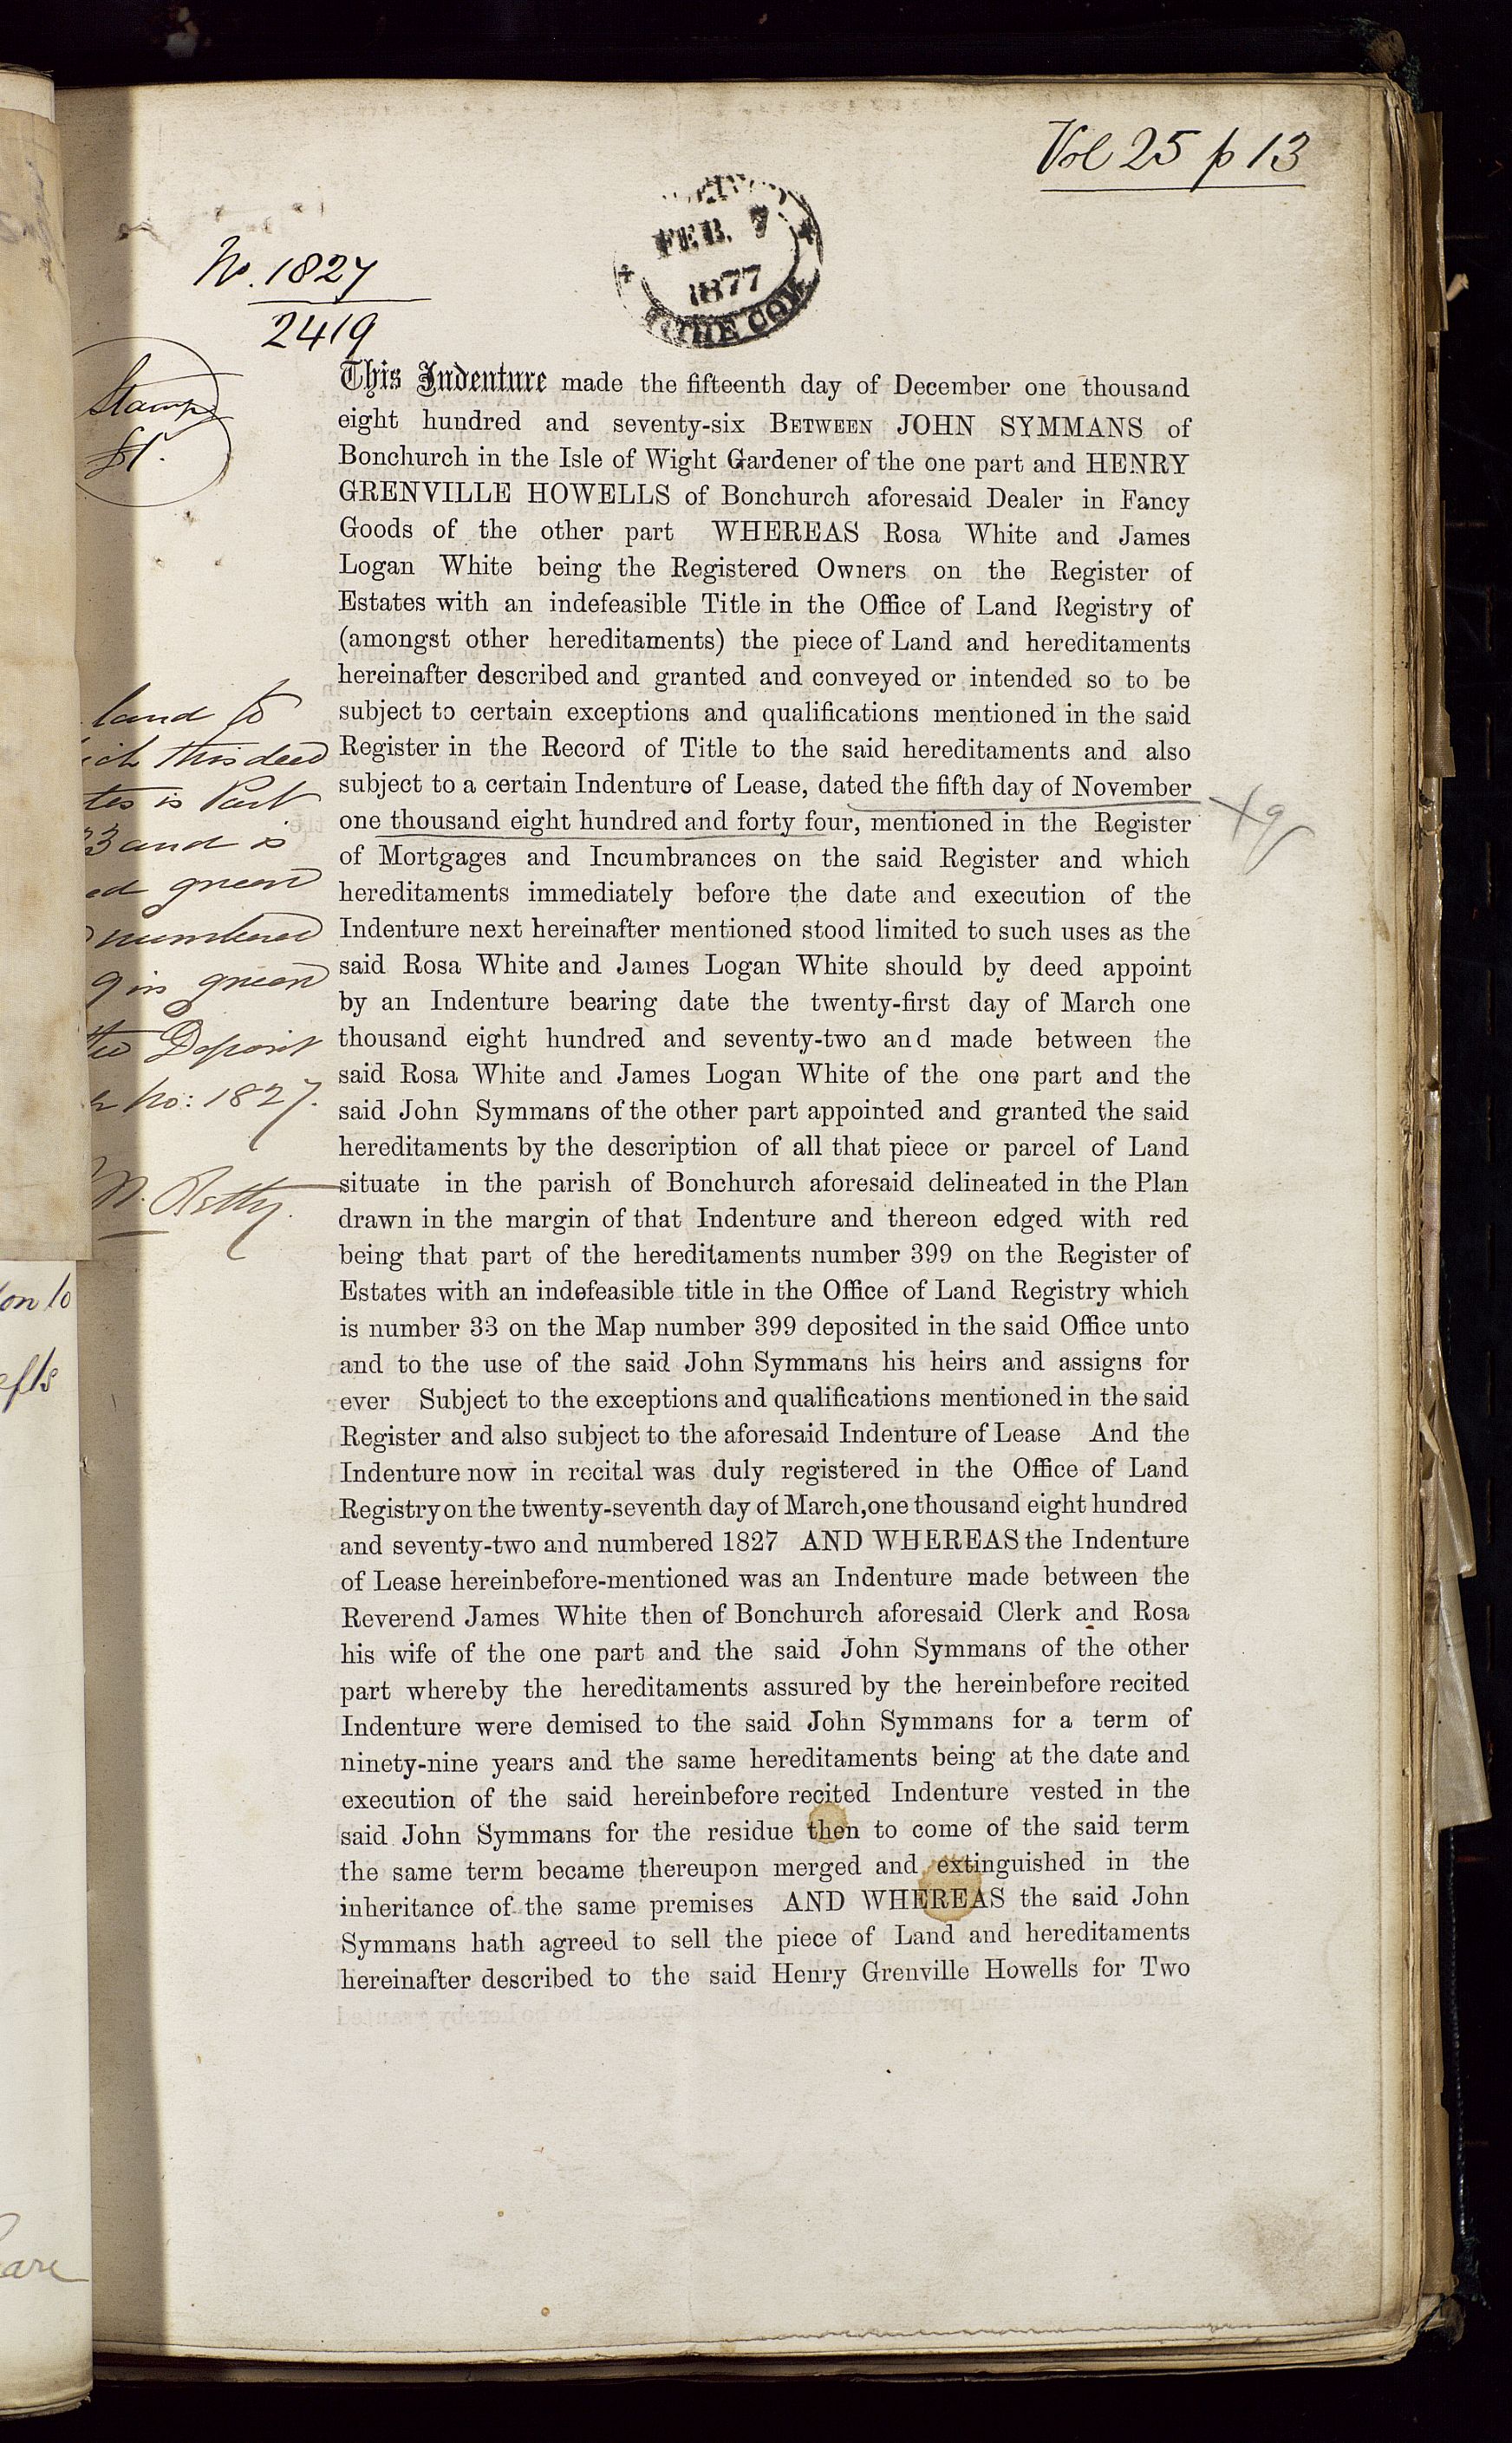 Vol 25 p 13
FEB. 7
1877
THE COM
No. 1827
2419
Stamp
£1.
This Indenture made the fifteenth day of December one thousand
eight hundred and seventy-six BETWEEN JOHN SYMMANS of
Bonchurch in the Isle of Wight Gardener of the one part and HENRY
GRENVILLE HOWELLS of Bonchurch aforesaid Dealer in Fancy
Goods of the other part WHEREAS Rosa White and James
Logan White being the Registered Owners on the Register of
Estates with an indefeasible Title in the Office of Land Registry of
(amongst other hereditaments) the piece of Land and hereditaments
hereinafter described and granted and conveyed or intended so to be
subject to certain exceptions and qualifications mentioned in the said
Register in the Record of Title to the said hereditaments and also
subject to a certain Indenture of Lease, dated the fifth day of November
one thousand eight hundred and forty four, mentioned in the Register
of Mortgages and Incumbrances on the said Register and which
hereditaments immediately before the date and execution of the
Indenture next hereinafter mentioned stood limited to such uses as the
said Rosa White and James Logan White should by deed appoint
by an Indenture bearing date the twenty-first day of March one
thousand eight hundred and seventy-two and made between the
said Rosa White and James Logan White of the one part and the
said John Symmans of the other part appointed and granted the said
hereditaments by the description of all that piece or parcel of Land
situate in the parish of Bonchurch aforesaid delineated in the Plan
drawn in the margin of that Indenture and thereon edged with red
being that part of the hereditaments number 399 on the Register of
Estates with an indefeasible title in the Office of Land Registry which
is number 33 on the Map number 399 deposited in the said Office unto
and to the use of the said John Symmans his heirs and assigns for
ever Subject to the exceptions and qualifications mentioned in the said
Register and also subject to the aforesaid Indenture of Lease And the
Indenture now in recital was duly registered in the Office of Land
Registry on the twenty-seventh day of March, one thousand eight hundred
and seventy-two and numbered 1827 AND WHEREAS the Indenture
of Lease hereinbefore-mentioned was an Indenture made between the
Reverend James White then of Bonchurch aforesaid Clerk and Rosa
his wife of the one part and the said John Symmans of the other
part whereby the hereditaments assured by the hereinbefore recited
Indenture were demised to the said John Symmans for a term of
ninety-nine years and the same hereditaments being at the date and
execution of the said hereinbefore recited Indenture vested in the
said John Symmans for the residue then to come of the said term
the same term became thereupon merged and extinguished in the
inheritance of the same premises AND WHEREAS the said John
Symmans hath agreed to sell the piece of Land and hereditaments
hereinafter described to the said Henry Grenville Howells for Two
land to
this deed
is Part
33 and is
green
numbered
9 in green
the Deposit
No: 1827.